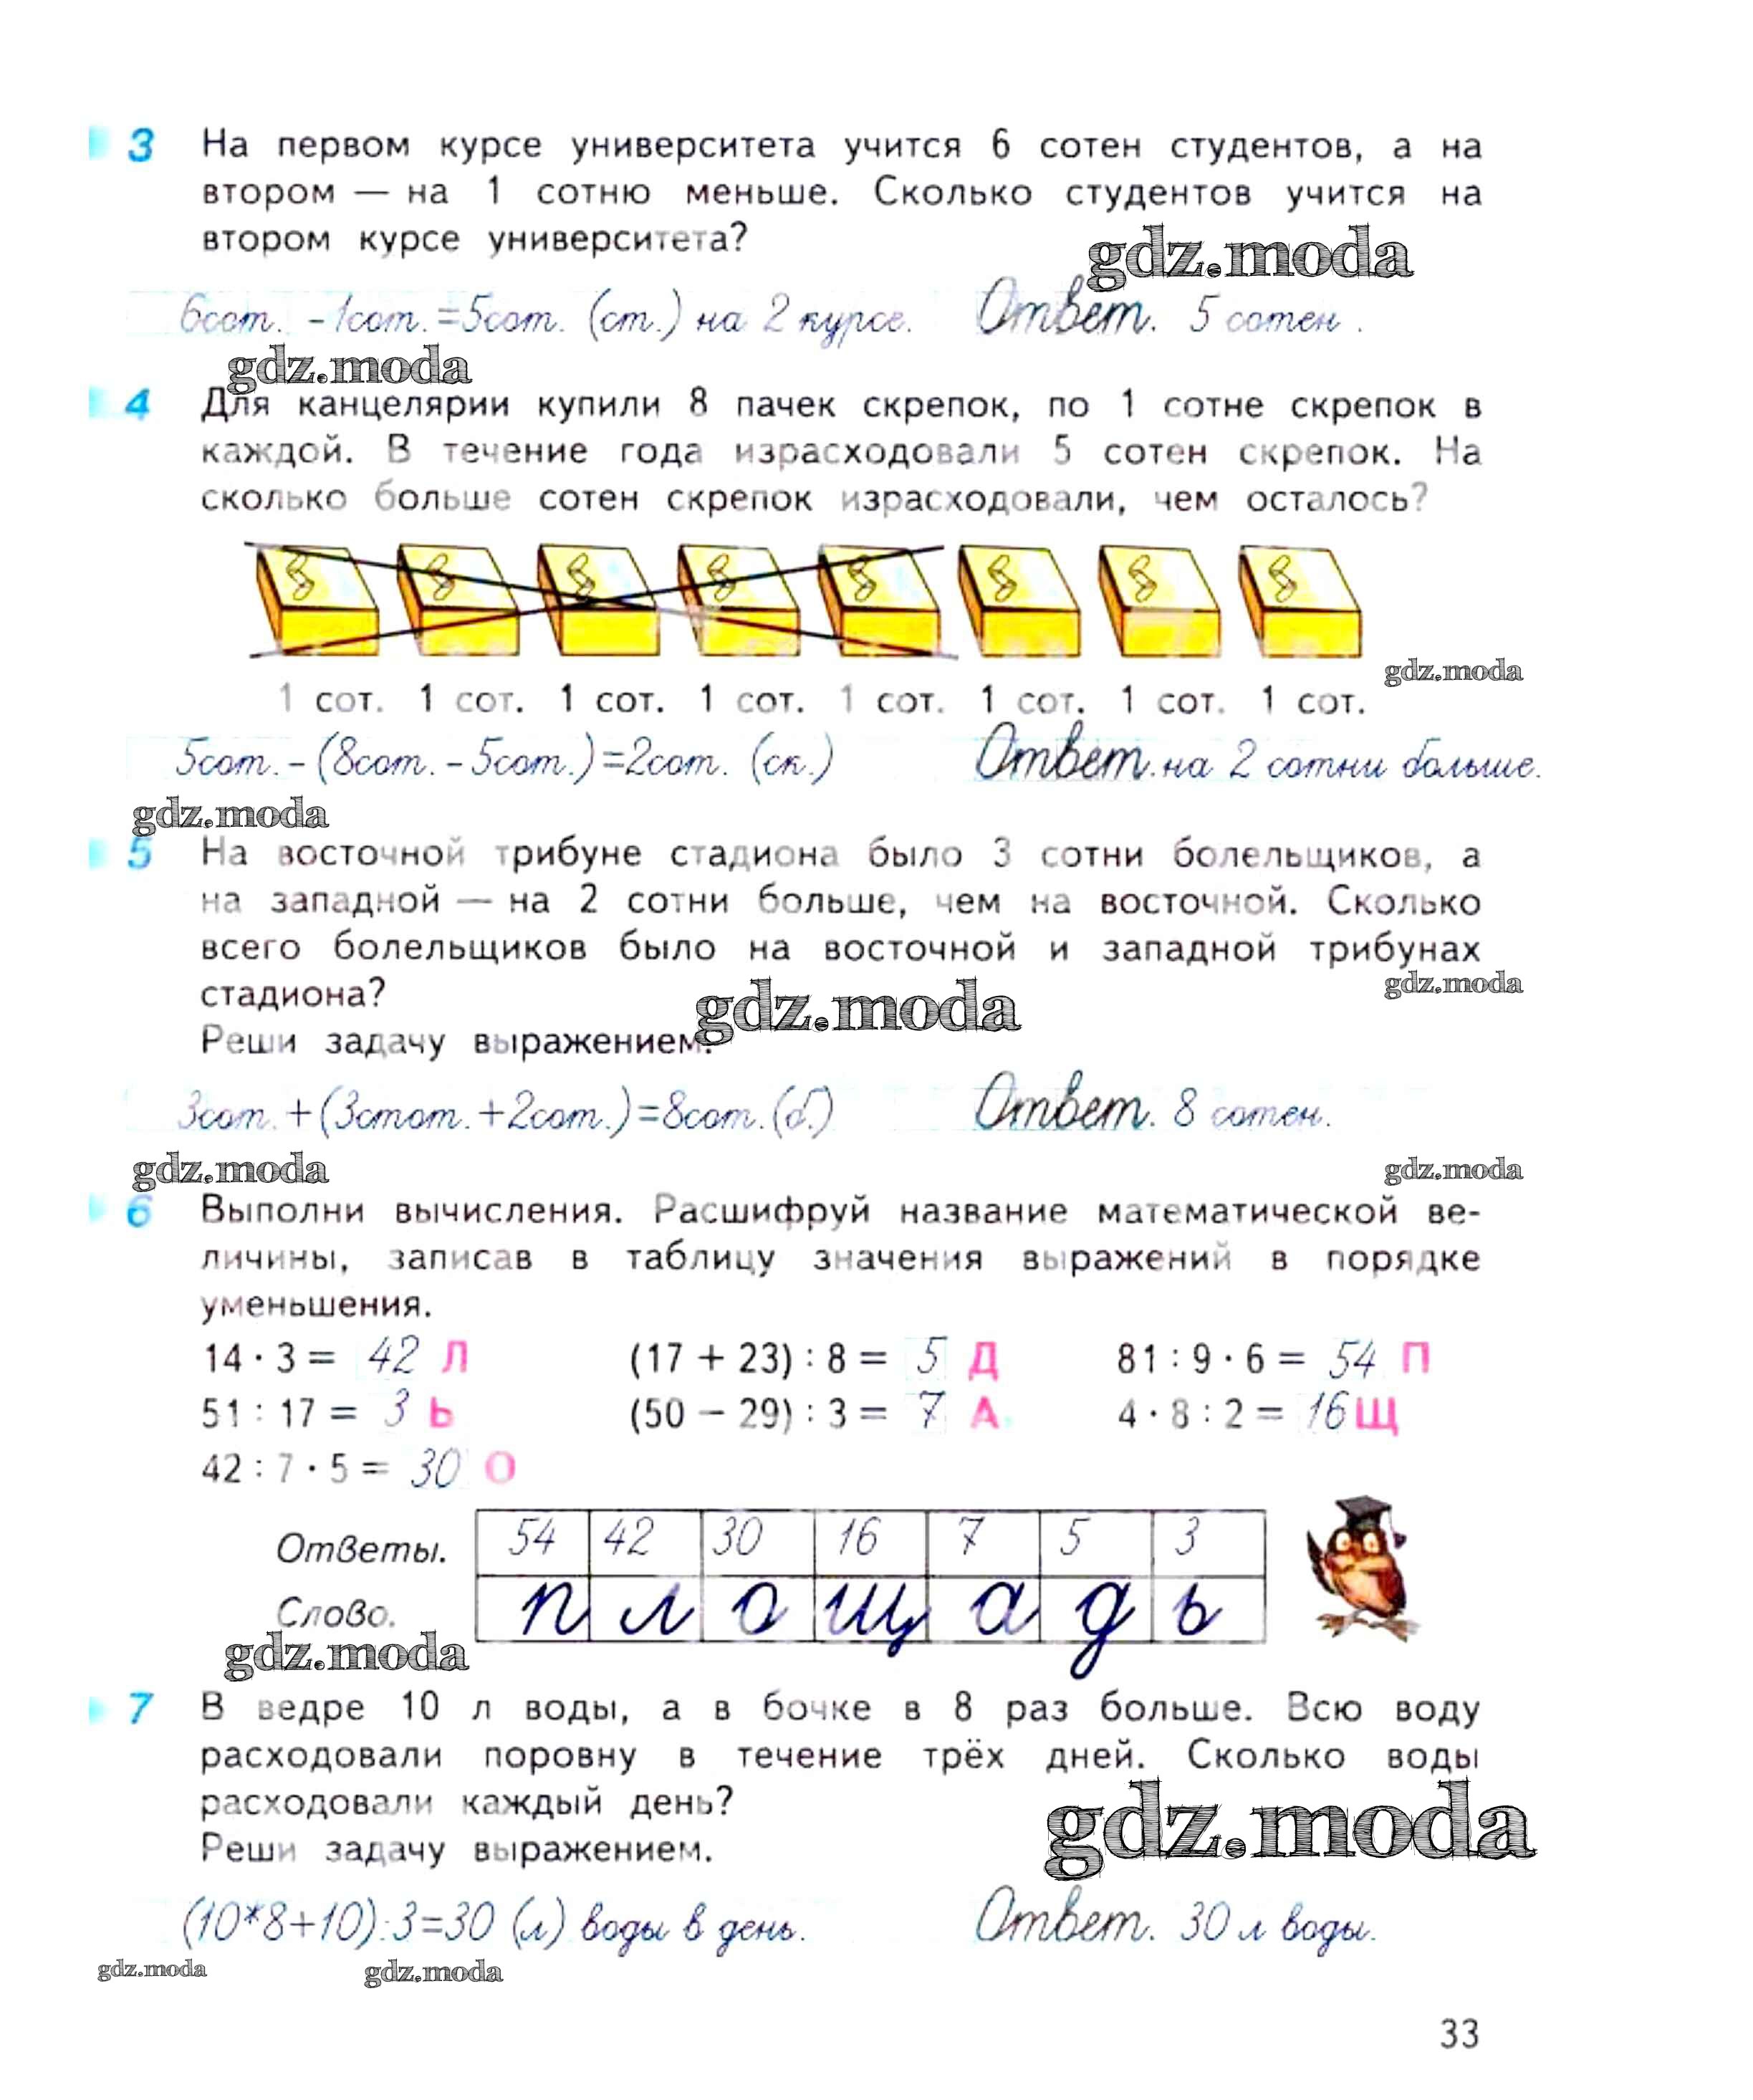 3 На первом курсе университета учится 6 сотен студентов, а на
втором — на 1 сотню меньше. Сколько студентов учится на
втором курсе университета?
gdz.moda
6сот. -1сот.=5сот. (ст.) на 2 курсе. Ответ. 5 сотен.
gdz.moda
4 Для канцелярии купили 8 пачек скрепок, по 1 сотне скрепок в
каждой. В течение года израсходовали 5 сотен скрепок. На
сколько больше сотен скрепок израсходовали, чем осталось?
gdz.moda
1 сот. 1 сот. 1 сот. 1 сот. 1 сот. 1 сот. 1 сот. 1 сот.
5сот.-(8сот.-5сот.)=2сот. (ск.) Ответ. на 2 сотни больше.
gdz.moda
5 На восточной трибуне стадиона было 3 сотни болельщиков, а
на западной — на 2 сотни больше, чем на восточной. Сколько
всего болельщиков было на восточной и западной трибунах
стадиона?
gdz.moda
gdz.moda
Реши задачу выражением.
3сот.+(3стот.+2сот.)=8сот.(б.) Ответ. 8 сотен.
gdz.moda
gdz.moda
6 Выполни вычисления. Расшифруй название математической ве-
личины, записав в таблицу значения выражений в порядке
уменьшения.
14 · 3 = 42 Л (17 + 23) : 8 = 5 Д 81 : 9 · 6 = 54 П
51 : 17 = 3 Ь (50 − 29) : 3 = 7 А 4 · 8 : 2 = 16 Щ
42 : 7 · 5 = 30 О
Ответы. 54 42 30 16 7 5 3
Слово. п л о щ а д ь
gdz.moda
7 В ведре 10 л воды, а в бочке в 8 раз больше. Всю воду
расходовали поровну в течение трёх дней. Сколько воды
расходовали каждый день?
gdz.moda
Реши задачу выражением.
(10*8+10):3=30 (л) воды в день. Ответ. 30 л воды.
gdz.moda gdz.moda
33